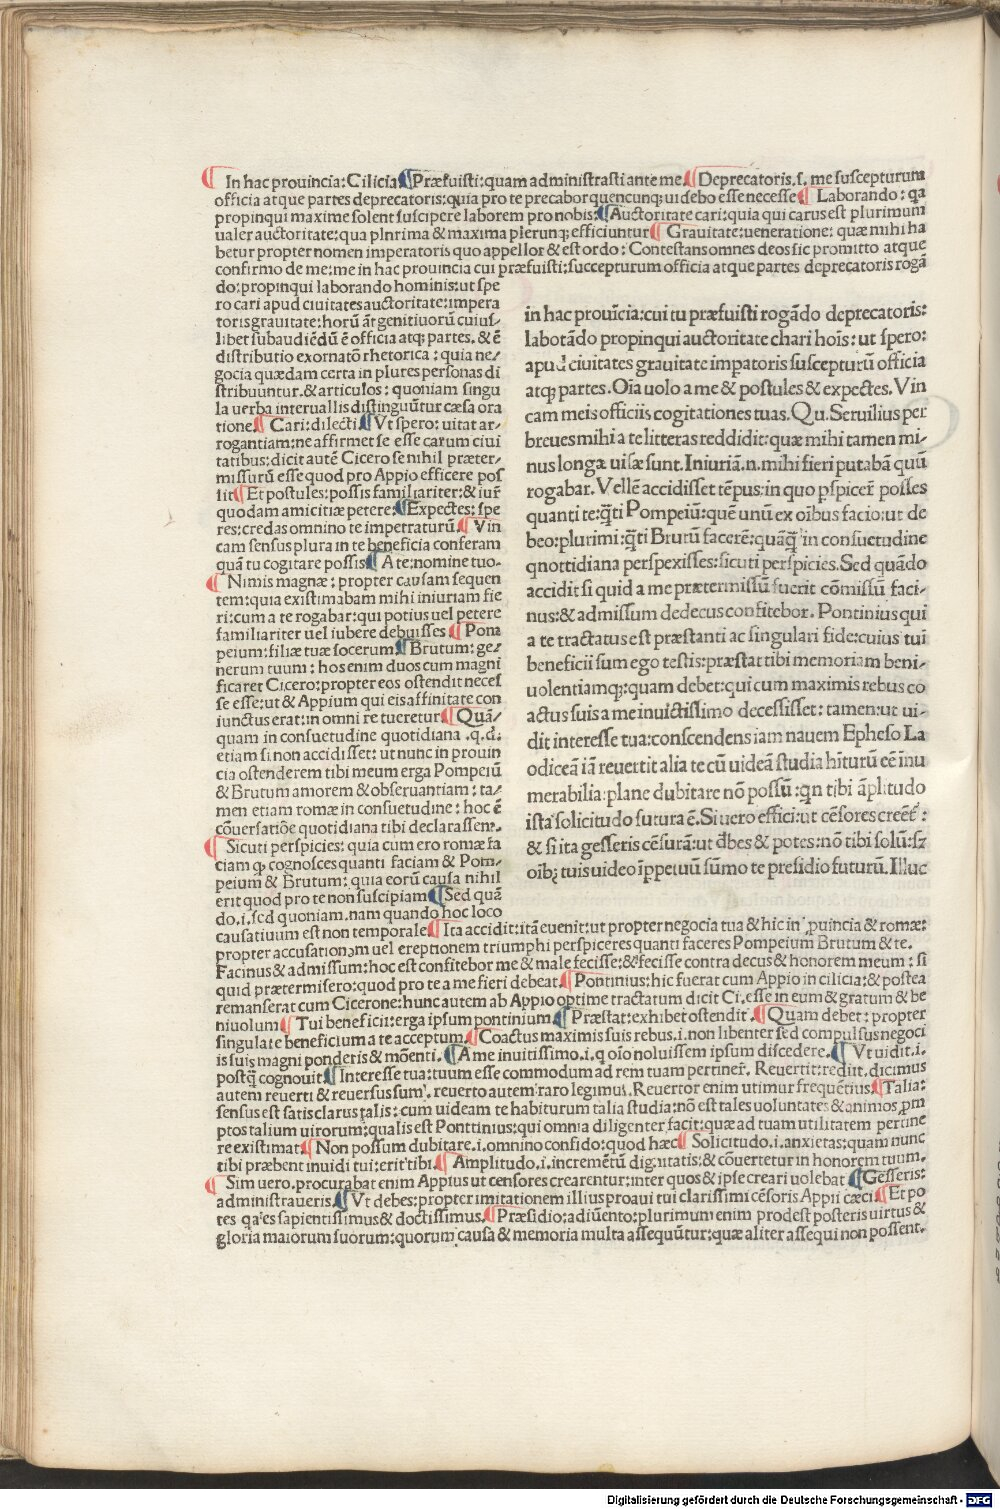 In hac prouincia:Cilicia ¶Præfuisti:quam administrasti ante me.¶ Deprecatoris.s.me suscepturum
officia atque partes deprecatoris:quia pro te precabor quencunq; uidebo esse necesse¶ Laborando:qa
propinqui maxime solent suscipere laborem pro nobis:¶Auctoritate cari:quia qui carus est plurimum
ualer auctoritate:qua plnrima & maxima plerunq; efficiuntur¶ Grauitate:ueneratione:quæ mihi ha
betur propter nomen imperatoris quo appellor & est ordo:Contestans omnes deos sic promitto atque
confirmo de me:me in hac prouincia cui præfuisti:succepturum officia atque partes deprecatoris rogā
do:propinqui laborando hominis:ut spe
ro cari apud ciuitates auctoritate:impera
toris grauitate:horū āt genitiuorū cuius-
libet subaudiēdū ē officia atq; partes.& ē
distributio exornatōn rhetorica:quia ne-
gocia quædam certa in plures personas di
stribuuntur.& articulos:quoniam singu
la uerba interuallis distinguūtur cæsa ora
tione¶ Cari:dilecti.¶Vt spero:uitat ar-
rogantiam:ne affirmet se esse carum ciui
tatibus:dicit autē Cicero se nihil præter-
missurū esse quod pro Appio efficere pos
sit¶ Et postules:possis familiariter:& iurē
quodam amicitiæ petere:¶Expectes:spe
res:credas omnino te impetraturū.¶ Vin
cam sensus plura in te beneficia conferam
quā tu cogitare possis¶ A te:nomine tuo-
¶Nimis magnæ:propter causam sequen
tem:quia existimabam mihi iniuriam fie
ri:cum a te rogabar:qui potius uel petere
familiariter uel iubere debuisses ¶ Pom
peium:filiæ tuæ socerum¶ Brutum:ge-
nerum tuum:hos enim duos cum magni
ficaret Cicero:propter eos ostendit neces
se esse:ut & Appium qui eis affinitate con
iunctus erat:in omni re tueretur¶ Quā-
quam in consuetudine quotidiana.q.d.
etiam si non accidisset:ut nunc in prouin
cia ostenderem tibi meum erga Pompeiū
& Brutum amorem & obseruantiam:ta-
men etiam romæ in consuetudine:hoc ē
cōuersatiōe quotidiana tibi declarassem.
¶ Sicuti perspicies:quia cum ero romæ fa
ciam q; cognosces quanti faciam & Pom-
peium & Brutum:quia eorū causa nihil
erit quod pro te non suscipiam¶Sed quā
do.i.sed quoniam.nam quando hoc loco
causatiuum est non temporale¶ Ita accidit:itā euenit:ut propter negocia tua & hic in puincia & romæ:
propter accusationem uel ereptionem triumphi perspiceres quanti faceres Pompeium Brutum & te.
Facinus & admissum:hoc est confitebor me & male fecisse:& fecisse contra decus & honorem meum:si
quid prætermisero:quod pro te a me fieri debeat.¶ Pontinius:hic fuerat cum Appio in cilicia:& postea
remanserat cum Cicerone:hunc autem ab Appio optime tractatum dicit Ci.esse in eum & gratum & be
niuolum¶ Tui beneficii:erga ipsum pontinium.¶ Præstat:exhibet ostendit.¶ Quam debet:propter
singulare beneficium a te acceptum.¶ Coactus maximis suis rebus.i.non libenter sed compulsus negoci
is suis magni ponderis & mōenti.¶A me inuitissimo.i.q oīo noluissem ipsum discedere.¶ Vt uidit.i.
postq̄ cognouit¶ Interesse tua:tuum esse commodum ad rem tuam pertinere.Reuertit:rediit.dicimus
autem reuerti & reuersus sum.reuerto autem raro legimus.Reuertor enim utimur frequētius¶Talia:
sensus est satis clarus talis:cum uideam te habiturum talia studia:nō est tales uoluntates & animos pm
ptos talium uirorum:qualis est Ponttinius:qui omnia diligenter facit:quæ ad tuam utilitatem pertine
re existimat¶ Non possum dubitare.i.omnino confido:quod hæc¶ Solicitudo.i.anxietas:quam nunc
tibi præbent inuidi tui:erit tibi.¶ Amplitudo.i.incremētū dignitatis:& cōuertetur in honorem tuum.
¶ Sim uero.procurabat enim Appius ut censores crearentur:inter quos & ipse creari uolebat ¶Gesseris:
administraueris.¶ Vt debes:propter imitationem illius proaui tui clarissimi cēsoris Appii cæci.¶Et po
tes qa es sapientissimus & doctissimus.¶Præsidio:adiuēnto:plurimum enim prodest posteris uirtus &
gloria maiorum suorum:quorum causa & memoria multa assequūtur:quæ aliter assequi non possent.
in hac prouīcia:cui tu præfuisti rogādo deprecatoris:
labotādo propinqui auctoritate chari hoīs:ut spero:
apud ciuitates grauitate impatoris suscepturū officia
atq; partes.Oīa uolo a me & postules & expectes.Vin
cam meis officiis cogitationes tuas.Qu.Seruilius per
breues mihi a te litteras reddidit:quæ mihi tamen mi-
nus longæ uisæ sunt.Iniuriā.n.mihi fieri putabā quū
rogabar.Vellē accidisset tēpus:in quo pspicere posses
quanti te:q̄ti Pompeiū:quē unū ex oībus facio:ut de
beo:plurimi:q̄ti Brutū facerē:quāq̄ in consuetudine
qnottidiana perspexisses:sicuti perspicies.Sed quādo
accidit si quid a me prætermissū fuerit cōmissū faci-
nus:& admissum dedecus confitebor.Pontinius qui
a te tractatus est præstanti ac singulari fide:cuius tui
beneficii sum ego testis:præstat tibi memoriam beni-
uolentiamq;:quam debet:qui cum maximis rebus co
actus suis a me inuictissimo decessisset:tamen:ut ui-
dit interesse tua:conscendens iam nauem Epheso La
odiceā iā reuertit alia te cū uideā studia hīturū eē īnu
merabilia:plane dubitare nō possū:qn tibi āplitudo
ista solicitudo futura ē.Si uero effici:ut cēsores creēt:
& si ita gesseris cēsurā:ut dbes & potes:nō tibi solū:sz
oīb; tuis uideo īppetuū sūmo te presidio futurū.Illuc
Digitalisierung gefördert durch die Deutsche Forschungsgemeinschaft - DFG